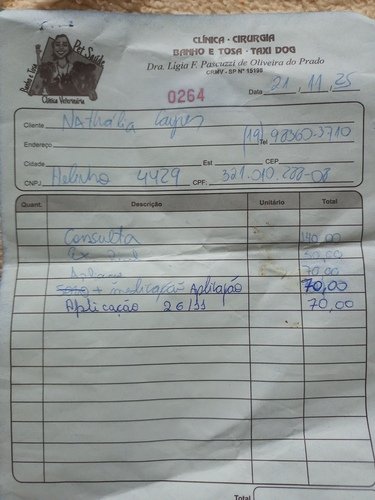 Pet Saúde
Clínica Veterinária
CLÍNICA - CIRURGIA
BANHO E TOSA - TAXI DOG
Dra. Ligia F. Pascuzzi de Oliveira do Prado
CRMV - SP Nº 15190
0264
Data 21 11 25
Cliente Nathália
Endereço Tel (19) 98360-3710
Cidade Est CEP
CNPJ 4429 CPF: 321.010.288-08
Quant. Descrição Unitário Total
Consulta 140,00
50,00
70,00
+ medicação Aplicação 70,00
Aplicação 26/11 70,00
Total